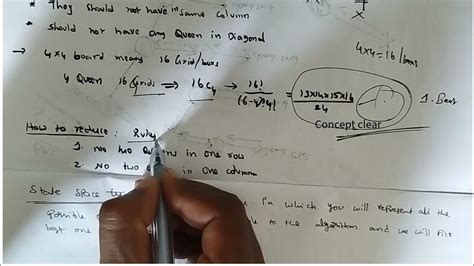 * They should not have in same column
* should not have any Queen in Diagonal
→ 4x4 board means 16 Grid/boxes
4x4-16/boxes
4 Queen 16 Grids ⇒ 16C4 ⇒ 16!/(16-4)!4! = 13x14x15x16/24
1. Best
Concept clear
How to reduce: Rules
1. No two in one row
2. No two in one column
State space in which you will represent all the
possible to the algorithm and we will pick
best one